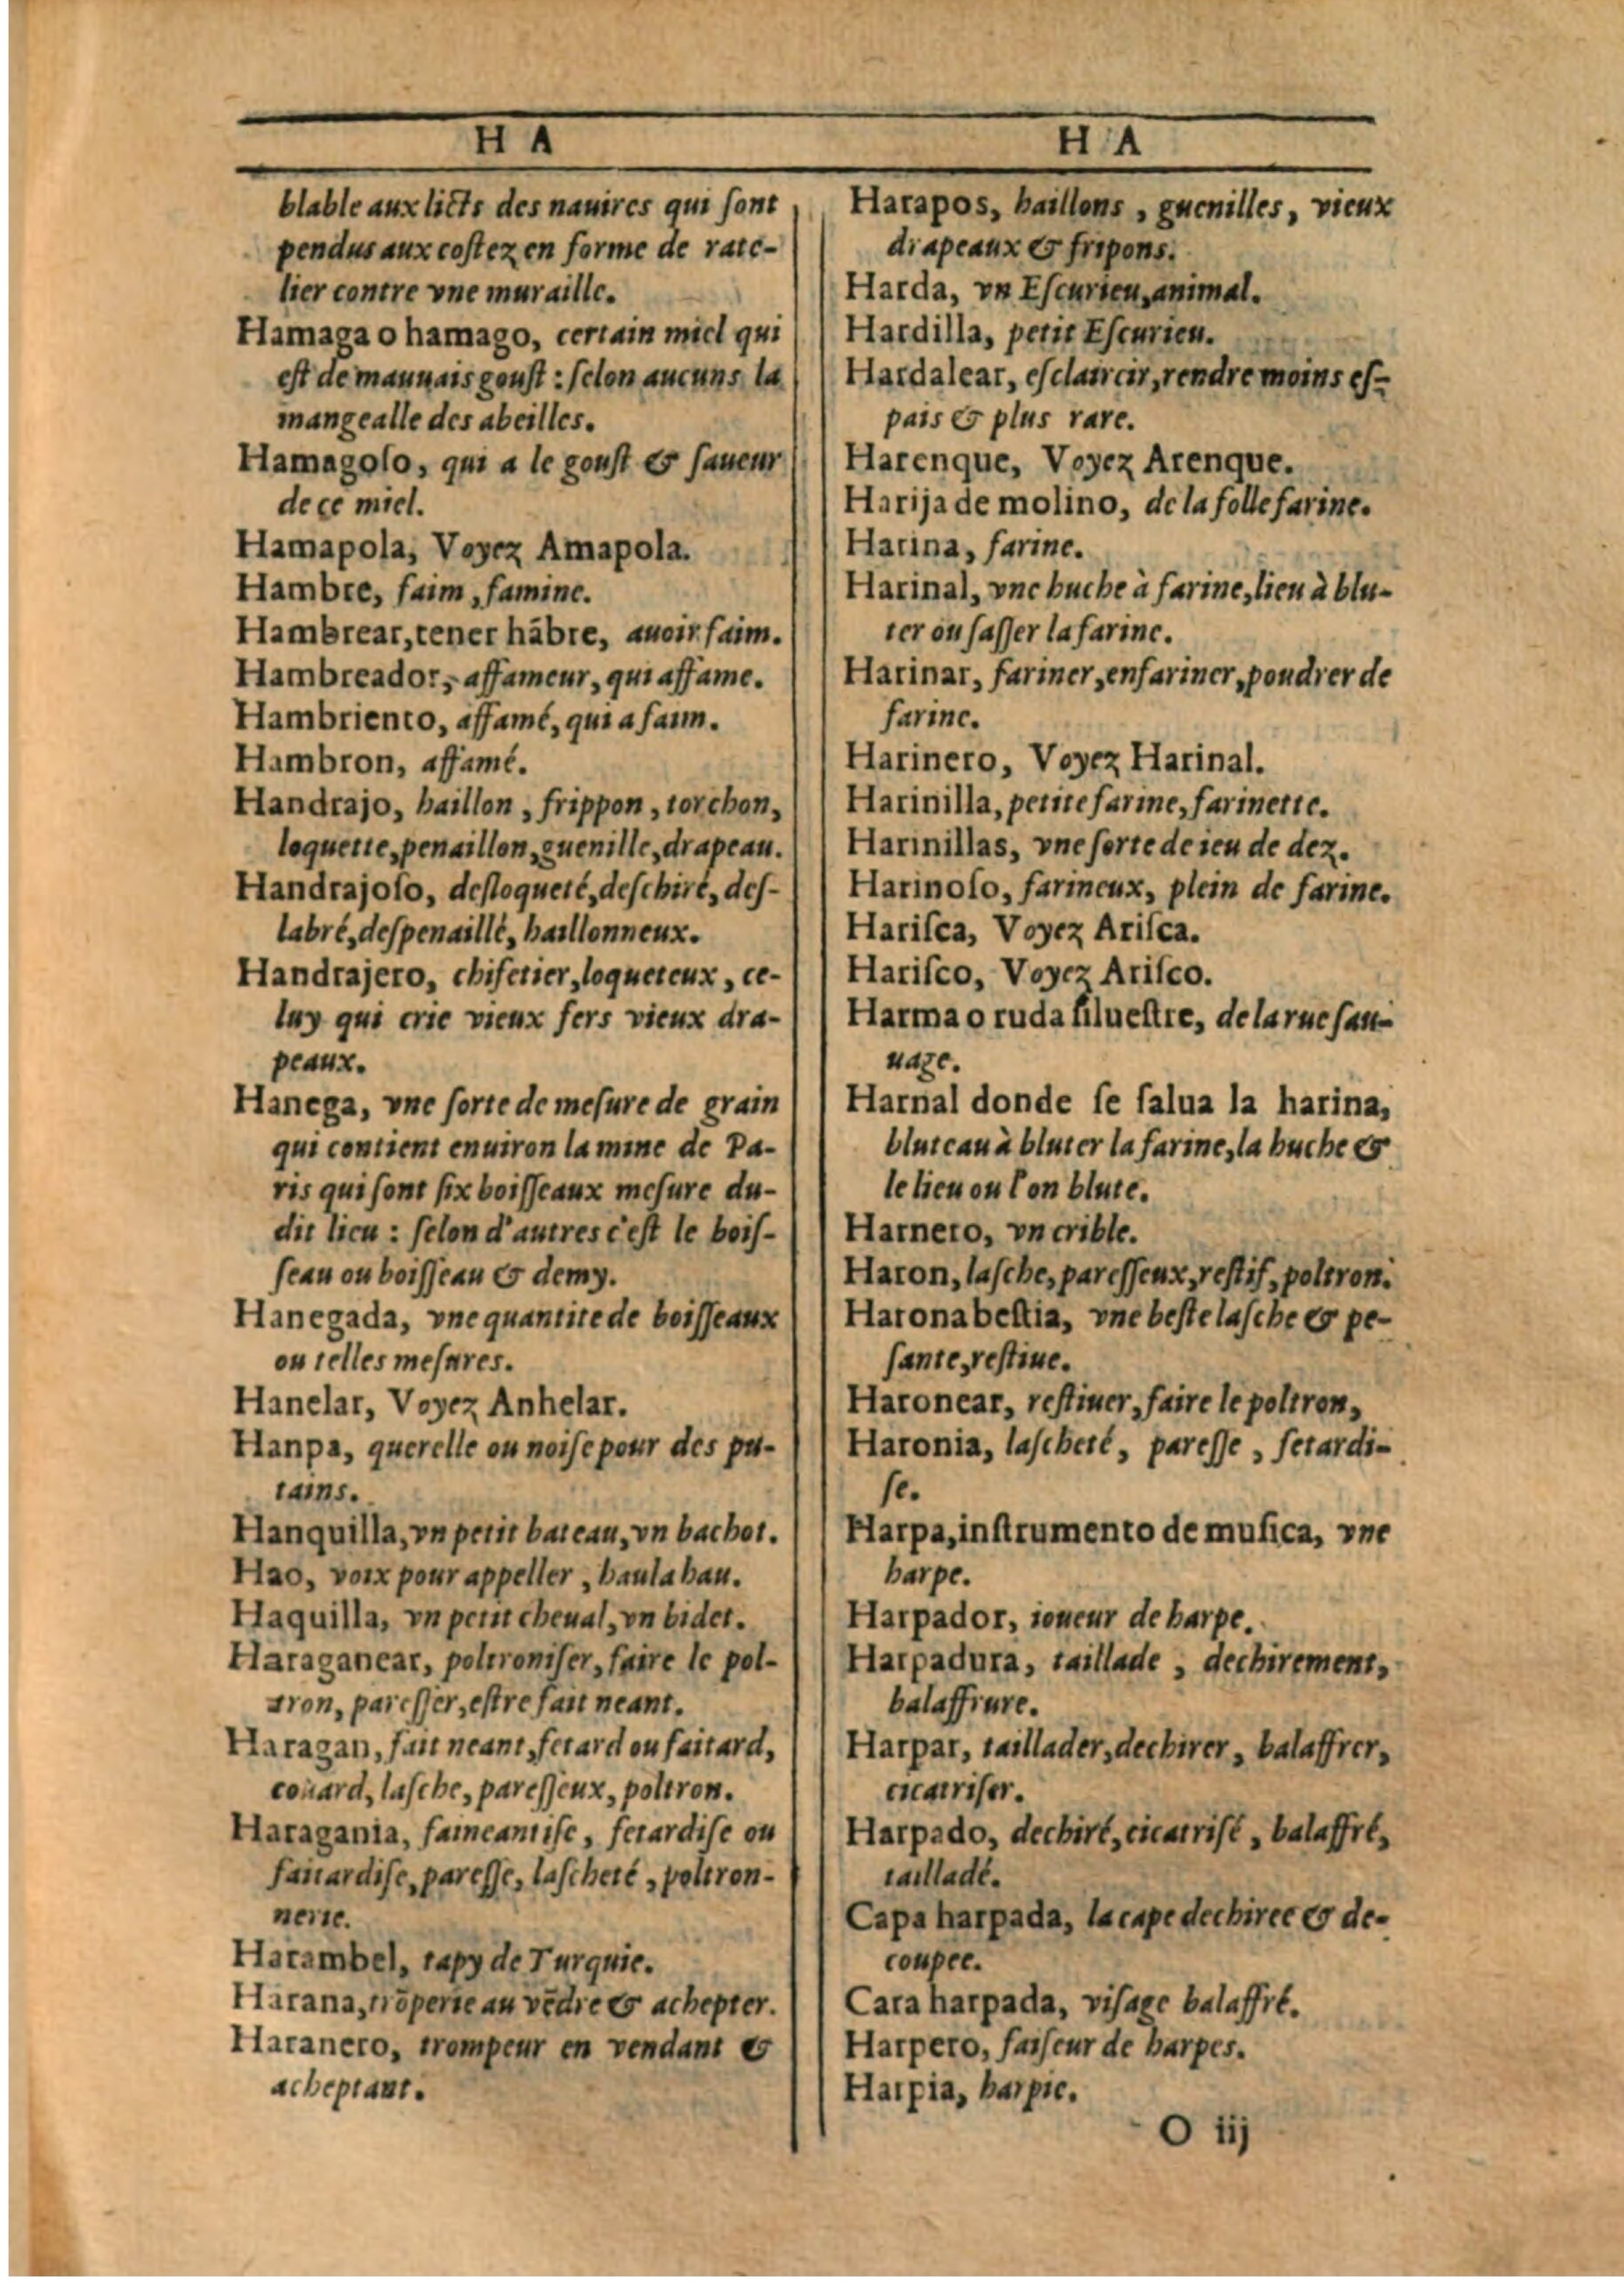 H A
blable aux licts des nauires qui ſont
pendus aux coſtez en forme de rate-
lier contre vne muraille.
Hamaga o hamago, certain miel qui
eſt de mauuais gouſt : ſelon aucuns la
mangealle des abeilles.
Hamagoſo, qui a le gouſt & ſaueur
de ce miel.
Hamapola, Voyez Amapola.
Hambre, faim, famine.
Hambrear, tener hãbre, auoir faim.
Hambreador, affameur, qui affame.
Hambriento, affamé, qui a faim.
Hambron, affamé.
Handrajo, haillon, frippon, torchon,
loquette, penaillon, guenille, drapeau.
Handrajoſo, desloqueté, deſchiré, deſ-
labré, deſpenaillé, haillonneux.
Handrajero, chifetier, loqueteux, ce-
luy qui crie vieux fers vieux dra-
peaux.
Hanega, vne ſorte de meſure de grain
qui contient enuiron la mine de Pa-
ris qui ſont ſix boiſſeaux meſure du-
dit lieu : ſelon d'autres c'eſt le boiſ-
ſeau ou boiſſeau & demy.
Hanegada, vne quantite de boiſſeaux
ou telles meſures.
Hanelar, Voyez Anhelar.
Hanpa, querelle ou noiſe pour des pu-
tains.
Hanquilla, vn petit bateau, vn bachot.
Hao, voix pour appeller, haula hau.
Haquilla, vn petit cheual, vn bidet.
Haraganear, poltroniſer, faire le pol-
tron, pareſſer, eſtre fait neant.
Haragan, fait neant, fetard ou faitard,
coüard, laſche, pareſſeux, poltron.
Haragania, faineantiſe, fetardiſe ou
faitardiſe, pareſſe, laſcheté, poltron-
nerie.
Harambel, tapy de Turquie.
Harana, trõperie au vẽdre & achepter.
Haranero, trompeur en vendant &
acheptant.
H A
Harapos, haillons, guenilles, vieux
drapeaux & fripons.
Harda, vn Eſcurieu, animal.
Hardilla, petit Eſcurieu.
Hardalear, eſclaircir, rendre moins eſ-
pais & plus rare.
Harenque, Voyez Arenque.
Harija de molino, de la folle farine.
Harina, farine.
Harinal, vne huche à farine, lieu à blu-
ter ou ſaſſer la farine.
Harinar, fariner, enfariner, poudrer de
farine.
Harinero, Voyez Harinal.
Harinilla, petite farine, farinette.
Harinillas, vne ſorte de ieu de dez.
Harinoſo, farineux, plein de farine.
Hariſca, Voyez Ariſca.
Hariſco, Voyez Ariſco.
Harma o ruda ſilueſtre, de la rue ſau-
uage.
Harnal donde ſe ſalua la harina,
bluteau à bluter la farine, la huche &
le lieu ou l'on blute.
Harnero, vn crible.
Haron, laſche, pareſſeux, reſtif, poltron.
Harona beſtia, vne beſte laſche & pe-
ſante, reſtiue.
Haronear, reſtiuer, faire le poltron,
Haronia, laſcheté, pareſſe, fetardi-
ſe.
Harpa, inſtrumento de muſica, vne
harpe.
Harpador, ioueur de harpe.
Harpadura, taillade, dechirement,
balaffrure.
Harpar, taillader, dechirer, balaffrer,
cicatriſer.
Harpado, dechiré, cicatriſé, balaffré,
tailladé.
Capa harpada, la cape dechiree & de-
coupee.
Cara harpada, viſage balaffré.
Harpero, faiſeur de harpes.
Harpia, harpie.
O iij